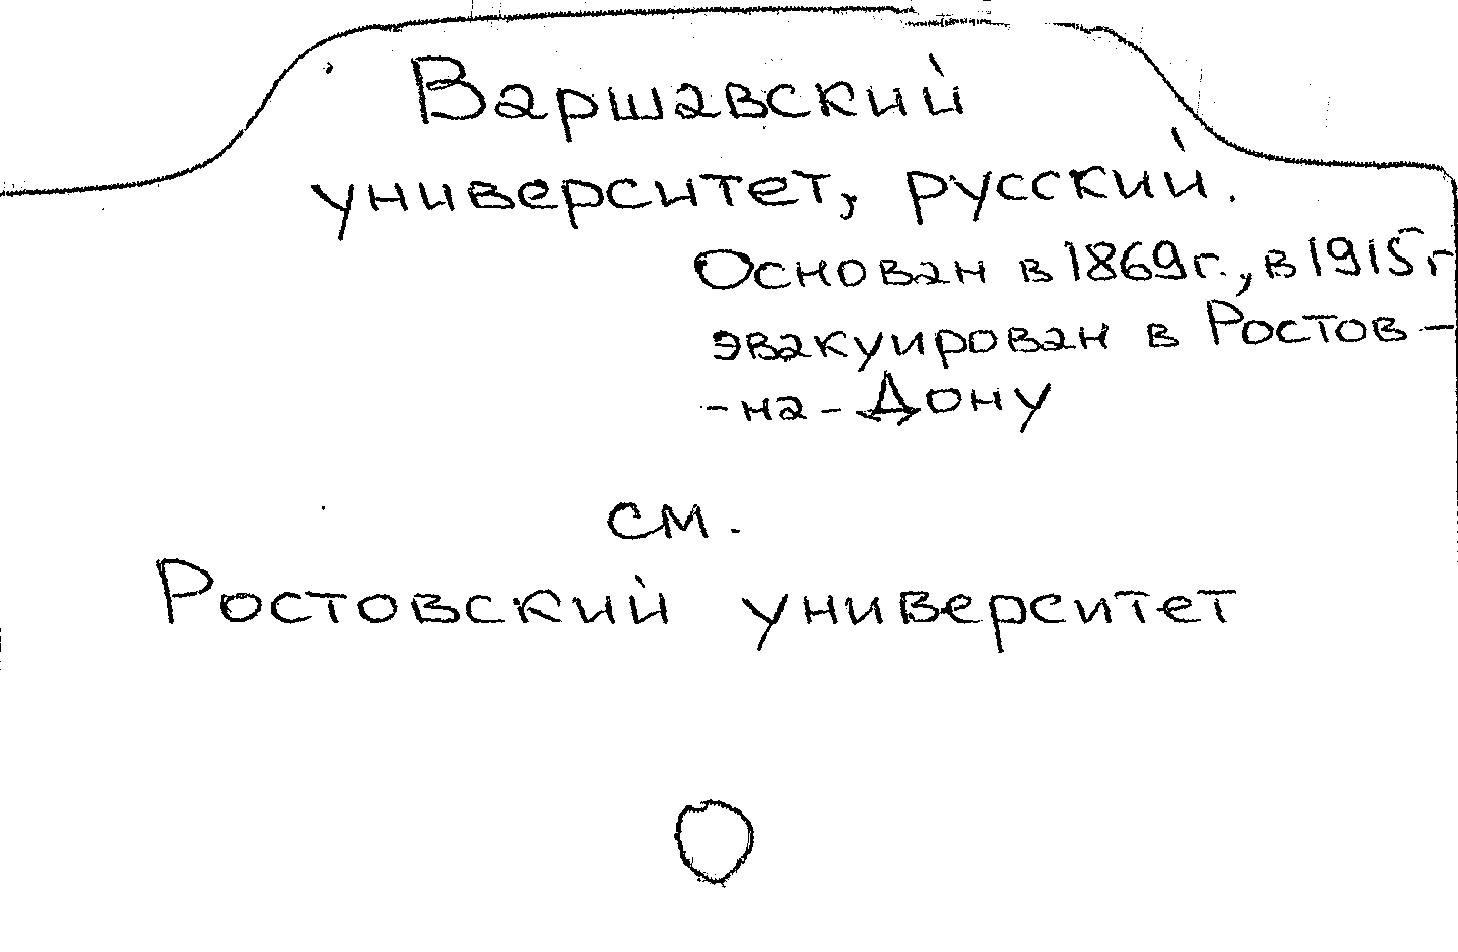 Варшавский
университет, русский.
Основан в 1869г., в 1915г
эвакуирован в Ростов-
-на-Дону
см.
Ростовский университет